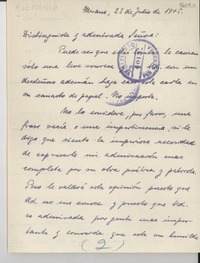 Merano, 23 de julio de 1945.
Distinguida y admirada Señora:
Puede ser que esta le cause
sólo una leve
desdeñoso ademán haga
canasto de papel. No importa.
No lo considere, por favor, una
frase vacía o una impertinencia, si le
digo que siento la imperiosa necesidad
de expresarle mi admiración más
completa por su obra poética y
Poco le valdrá esta opinión puesto que
Ud. no me conoce y puesto que Ud. es
admirada por gente más impor-
tante y conocida que este su humilde
(2)